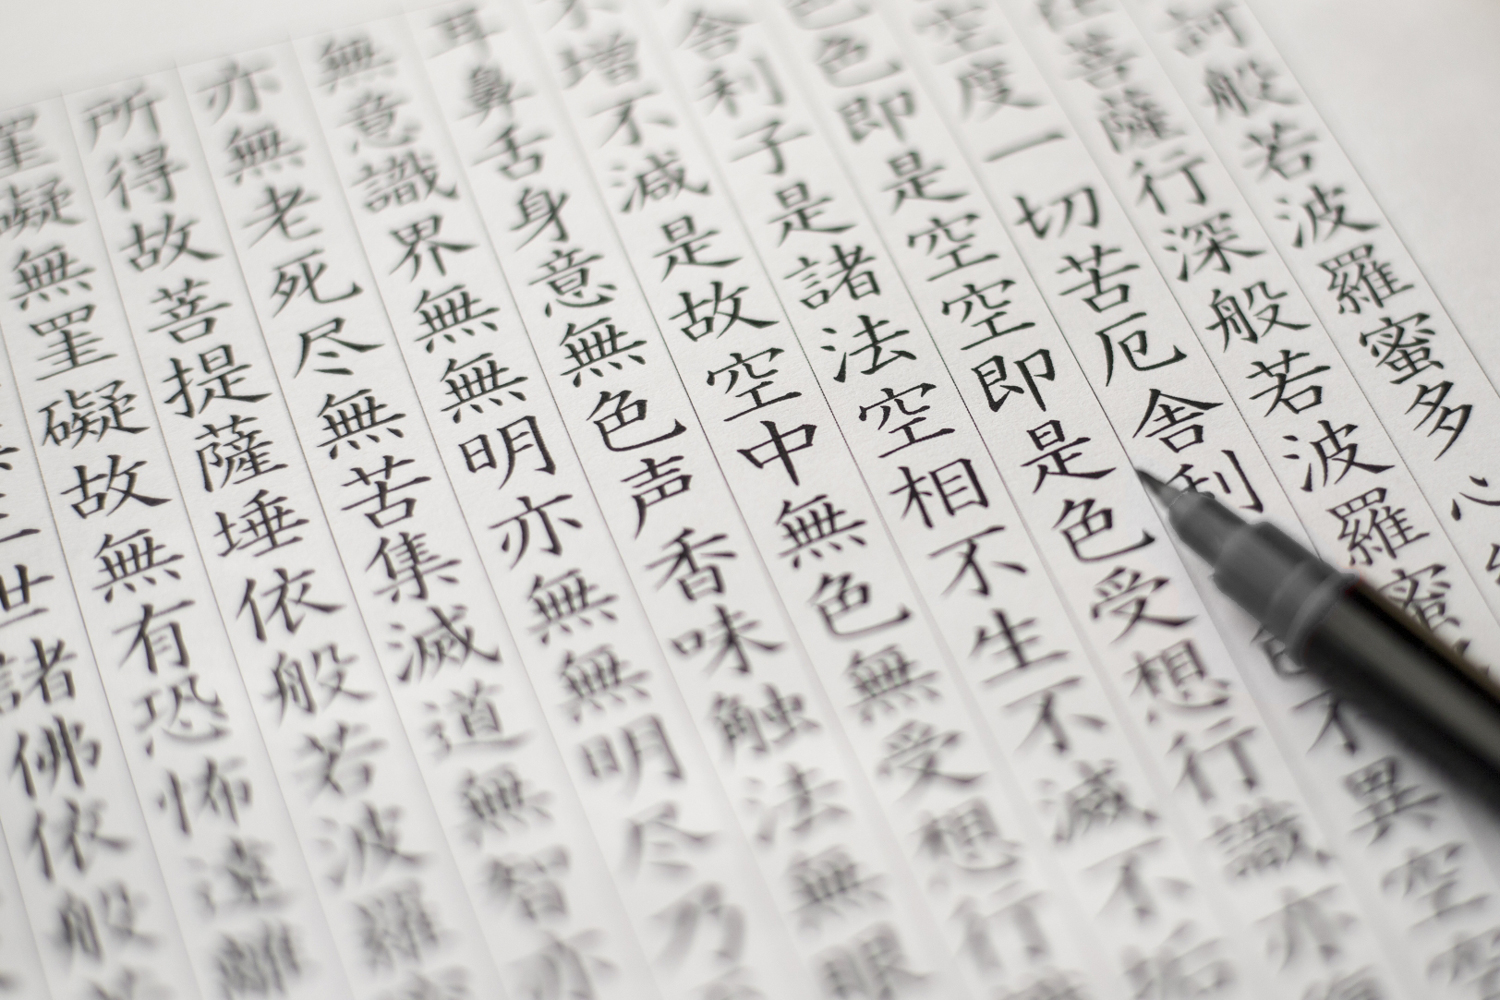 訶般若波羅蜜多心
菩薩行深般若波羅蜜
空度一切苦厄舎利
不異空
色即是空空即是色受想行識亦
舎利子是諸法空相不生不滅不垢
不増不減是故空中無色無受想行
耳鼻舌身意無色声香味触法無眼
無意識界無無明亦無無明尽乃
亦無老死尽無苦集滅道無智亦
所得故菩提薩埵依般若波羅
罣礙無罣礙故無有恐怖遠離
世諸佛依般